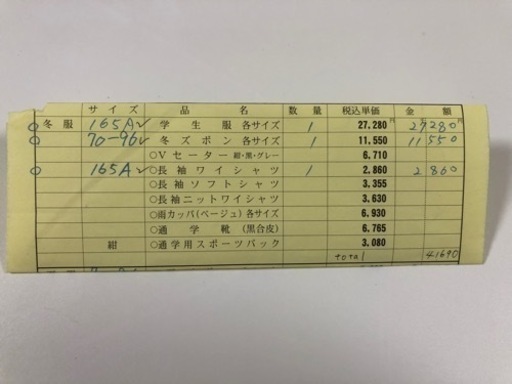 サイズ 品名 数量 税込単価 金額
○ 冬服 165A✓ 学生服 各サイズ 1 27.280円 27280円
○ 70-96✓ 冬ズボン 各サイズ 1 11.550 11550
○Vセーター 紺・黒・グレー 6.710
○ 165A✓ ○長袖ワイシャツ 1 2.860 2860
○長袖ソフトシャツ 3.355
○長袖ニットワイシャツ 3.630
○雨カッパ(ベージュ)各サイズ 6.930
○通学靴 (黒合皮) 6.765
紺 ○通学用スポーツバック 3.080
total 41690